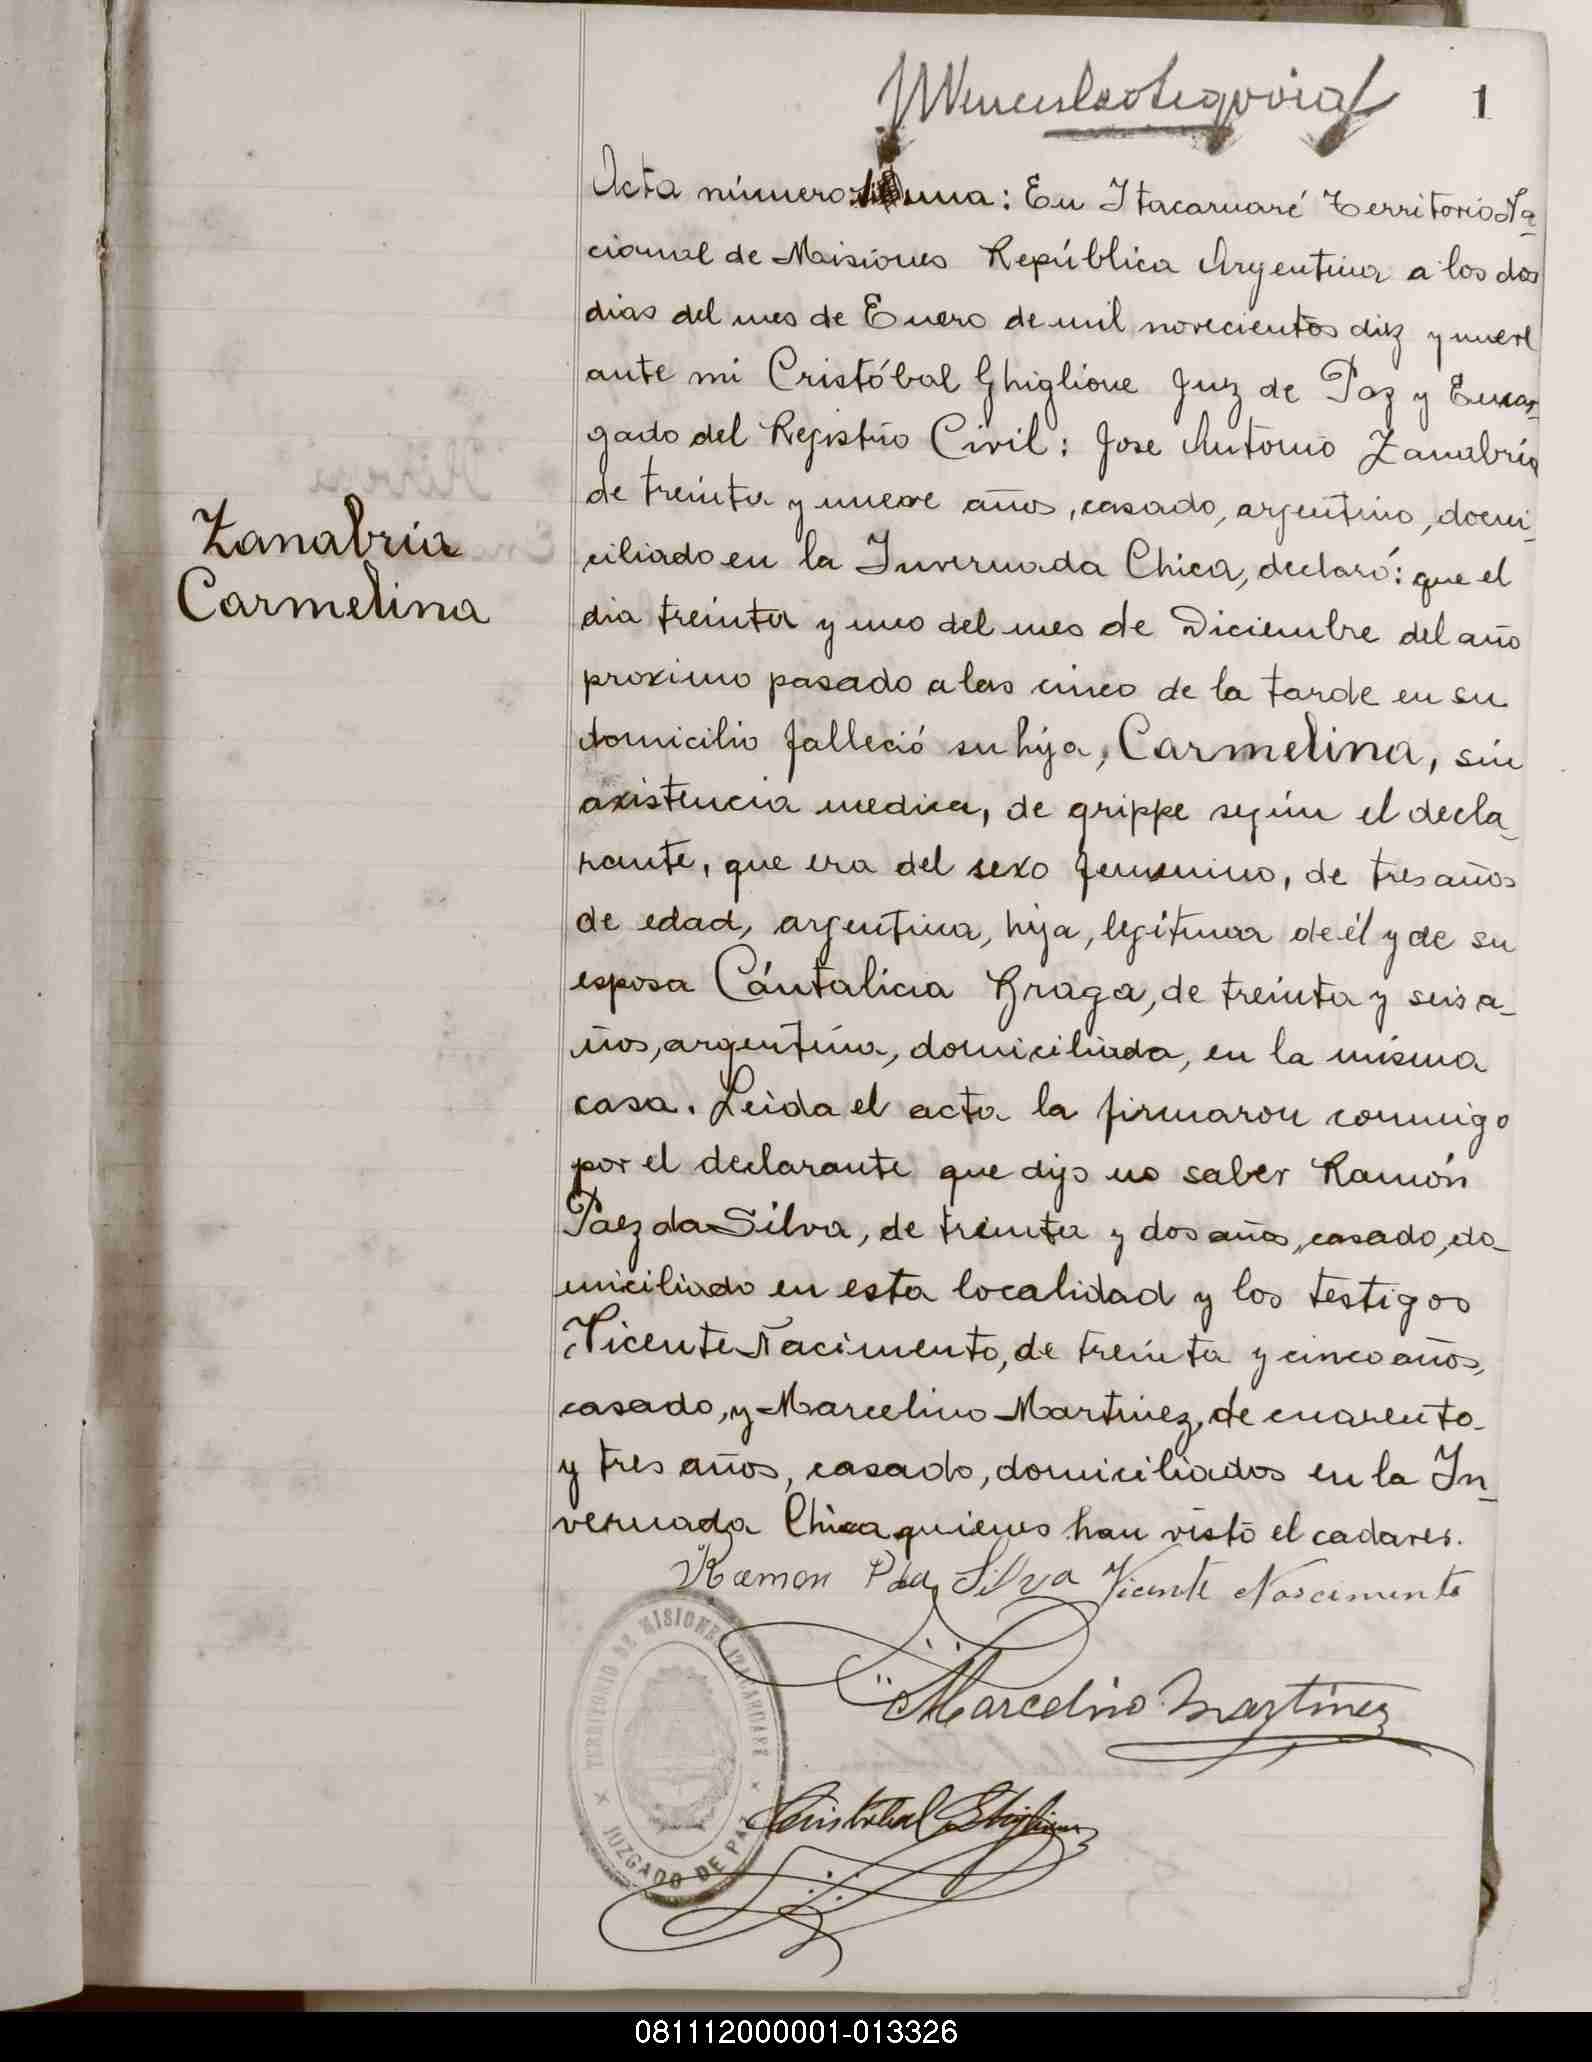 1
Acta número una: En Itacaruaré Territorio Na-
cional de Misiones República Argentina a los dos
dias del mes de Enero de mil novecientos diez y nueve
ante mi Cristóbal Ghiglione Juez de Paz y Encar-
gado del Registro Civil: Jose Antonio Zanabria
de treinta y nueve años, casado, argentino, domi-
ciliado en la Invernada Chica, declaró: que el
Zanabria
Carmelina
dia treinta y uno del mes de Diciembre del año
proximo pasado a las cinco de la tarde en su
domicilio falleció su hija, Carmelina, sin
asistencia medica, de grippe según el decla-
rante, que era del sexo femenino, de tres años
de edad, argentina, hija, legitima de él y de su
esposa Cántalicia Braga, de treinta y seis a-
ños, argentina, domiciliada, en la misma
casa. Leida el acta la firmaron conmigo
por el declarante que dijo no saber Ramón
Paez da Silva, de treinta y dos años, casado, do-
miciliado en esta localidad y los testigos
Vicente Nacimento, de treinta y cinco años,
casado, y Marcelino Martinez, de cuarenta
y tres años, casado, domiciliados en la In-
vernada Chica quienes han visto el cadaver.
Ramon P da Silva Vicente Nascimento
Marcelino Martinez
Cristobal Ghiglione
TERRITORIO DE MISIONES ITACARUARE
JUZGADO DE PAZ
081112000001-013326